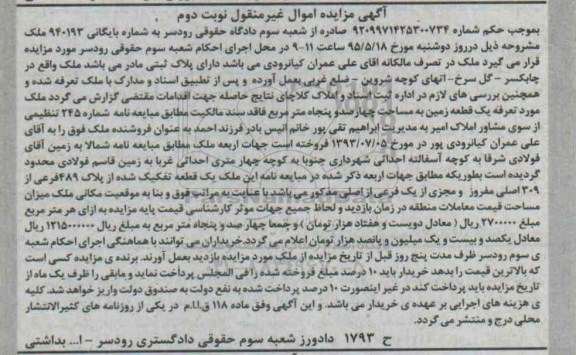 آگهی مزایده اموال غیرمنقول نوبت دوم
بموجب حکم شماره ۹۲۰۹۹۷۱۴۲۵۳۰۰۷۳۴ صادره از شعبه سوم دادگاه حقوقی رودسر به شماره بایگانی ۹۴۰۱۹۳ ملک
مشروحه ذیل درروز دوشنبه مورخ ۹۵/۵/۱۸ ساعت ۱۱-۹ در محل اجرای احکام شعبه سوم حقوقی رودسر مورد مزایده
قرار می گیرد ملک در تصرف مالکانه اقای علی عمران کیانرودی می باشد دارای پلاک ثبتی مادر می باشد ملک واقع در
چابکسر - گل سرخ- انتهای کوچه شروین - ضلع غربی بعمل آورده و پس از تطبیق اسناد و مدارک با ملک تعرفه شده و
همچنین بررسی های لازم در اداره ثبت اسناد و املاک کلاچای نتایج حاصله جهت اقدامات مقتضی گزارش می گردد ملک
مورد تعرفه یک قطعه زمین به مساحت چهارصدو پنجاه متر مربع فاقد سند مالکیت مطابق مبایعه نامه شماره ۲۴۵ تنظیمی
از سوی مشاور املاک امیر به مدیریت ابراهیم تقی پور خانم انیس بادر فرزند احمد به عنوان فروشنده ملک فوق را به آقای
علی عمران کیانرودی پور در مورخ ۱۳۹۳/۰۷/۰۵ فروخته است جهات اربعه ملک مطابق مبایعه نامه شمالا به زمین آقای
فولادی شرقا به کوچه آسفالته احداثی شهرداری جنوبا به کوچه چهار متری احداثی غربا به زمین قاسم فولادی محدود
گردیده است بطوریکه مطابق جهات اربعه ذکر شده در مبایعه نامه این ملک یک قطعه تفکیک شده از پلاک ۴۸۹فرعی از
۳۰۹ اصلی مفروز و مجزی از یک فرعی از اصلی مذکور می باشد با عنایت به مراتب فوق و بنا به موقعیت مکانی ملک میزان
مساحت قیمت معاملات منطقه در زمان بازدید و لحاظ جمیع جهات موثر کارشناسی قیمت پایه مزایده به ازای هر متر مربع
مبلغ ۲۷۰۰۰۰۰ ریال ( معادل دویست و هفتاد هزار تومان ) و جمعا چهار صدو پنجاه متر مربع به مبلغ ریال ۱۲۱۵۰۰۰۰۰۰ ریال
معادل یکصد و بیست و یک میلیون و پانصد هزار تومان اعلام می گردد.خریداران می توانند با هماهنگی اجرای احکام شعبه
ی سوم رودسر ظرف مدت پنج روز قبل از تاریخ مزایده از ملک مورد مزایده بازدید بعمل آورند. برنده ی مزایده کسی است
که بالاترین قیمت را بدهد خریدار باید ۱۰ درصد مبلغ فروخته شده رافی المجلس پرداخت نماید و مابقی را ظرف یک ماه از
تاریخ مزایده باید پرداخت کند در غیر اینصورت ۱۰ درصد پرداخت شده به نفع دولت به صندوق دولت واریز خواهد شد. کلیه
ی هزینه های اجرایی بر عهده ی خریدار می باشد. و این آگهی وفق ماده ۱۱۸ ق.ا.ا.م در یکی از روزنامه های کثیرالانتشار
محلی درج و منتشر می گردد.
ح ۱۷۹۳ دادورز شعبه سوم حقوقی دادگستری رودسر - ا... بداشتی